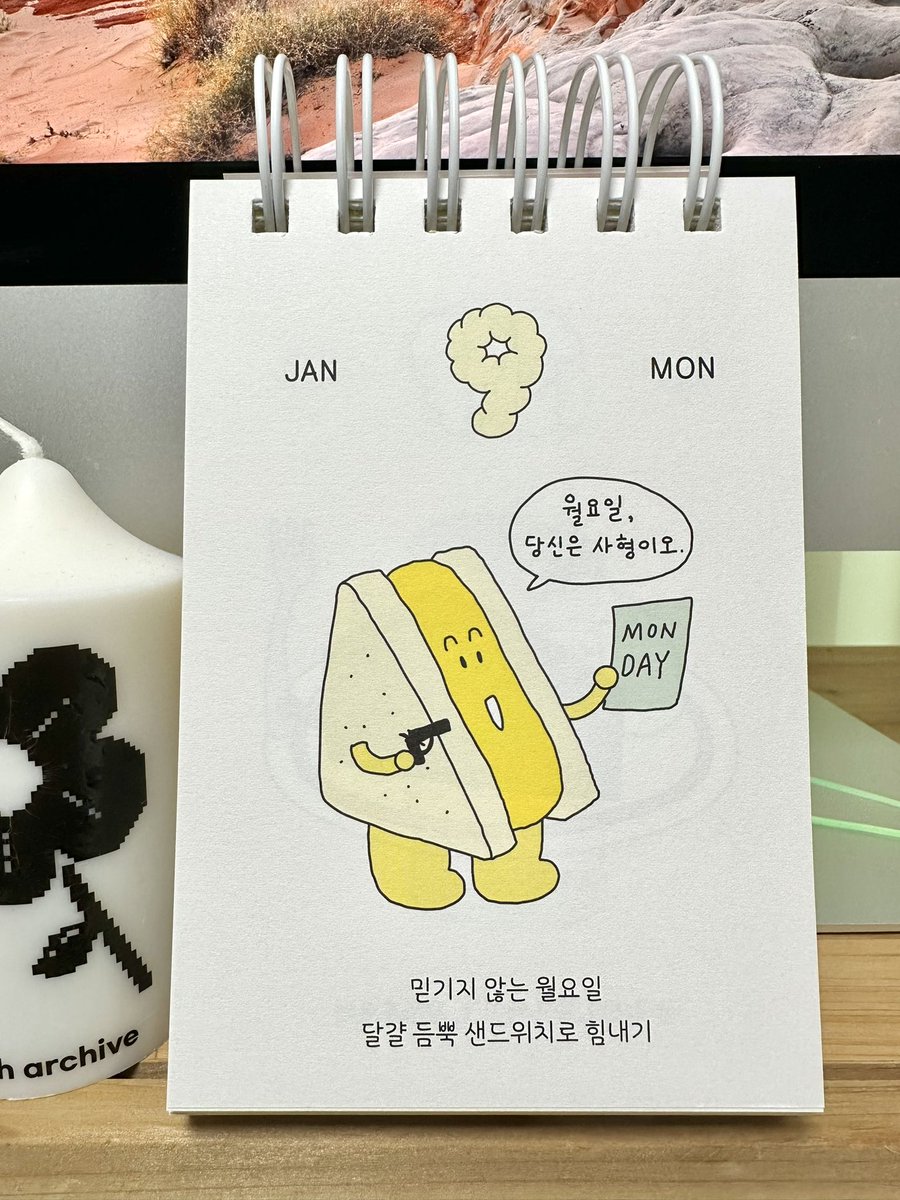 JAN
9
MON
월요일,
당신은 사형이오.
MON
DAY
믿기지 않는 월요일
달걀 듬뿍 샌드위치로 힘내기
h archive